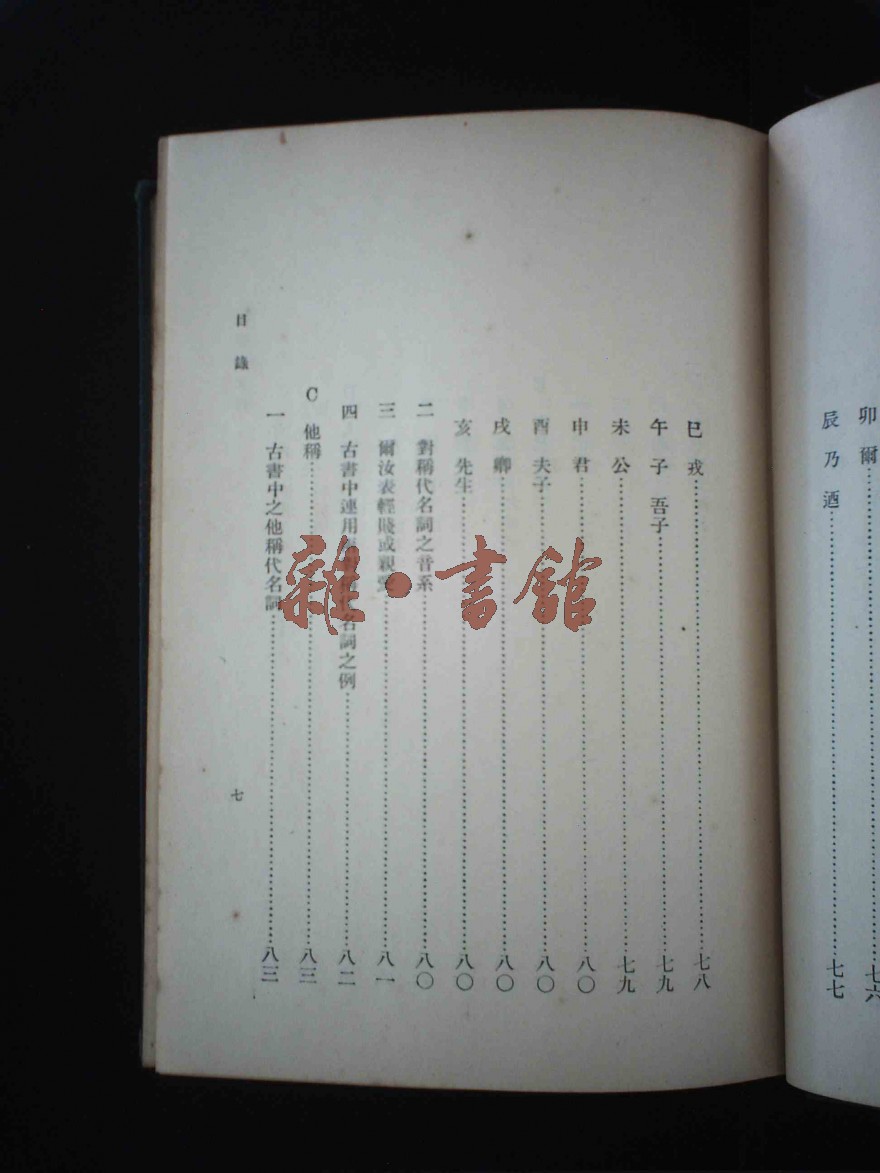 卯 爾……七六
辰 乃 迺……七七
巳 戎……七八
午 子 吾子……七九
未 公……七九
申 君……八〇
酉 夫子……八〇
戌 卿……八〇
亥 先生……八〇
二 對稱代名詞之音系……八〇
三 爾汝表輕賤或親……八一
四 古書中連用 代名詞之例……八二
C 他稱……八三
一 古書中之他稱代名詞……八三
目錄
七
雜·書館